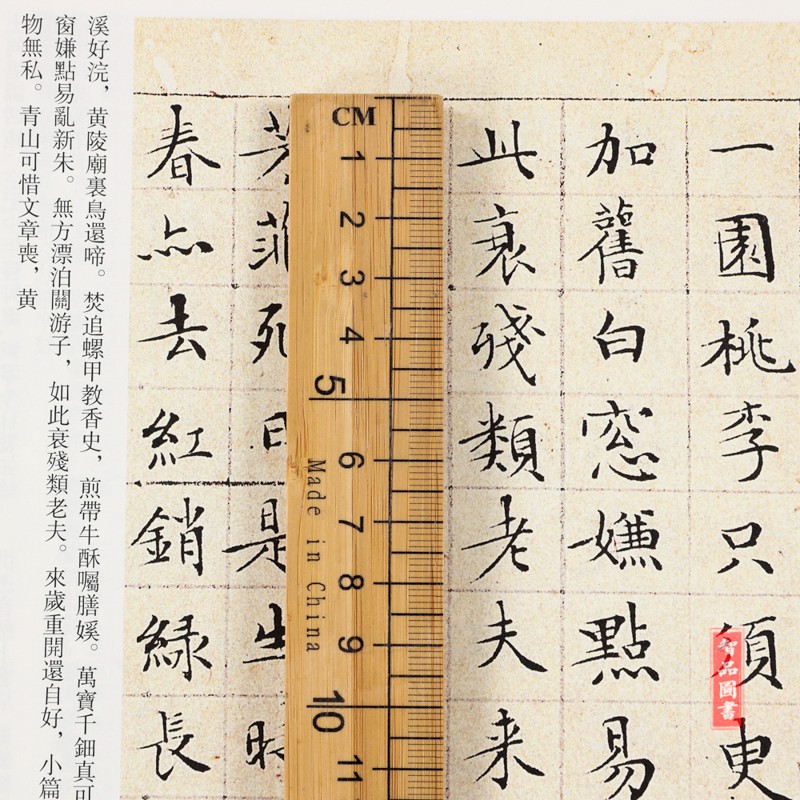 一園桃李只須臾
加舊白窓嫌點易
此衰殘類老夫来
芳菲死日是生時
春亦去紅銷緑長
CM
1
2
3
4
5
6
7
8
9
10
11
Made in China
智品圖書
溪好浣，黄陵廟裏鳥還啼。焚追螺甲教香史，煎帶牛酥囑膳㜎。萬寶千鈿真可
窗嫌點易亂新朱。無方漂泊關游子，如此衰殘類老夫。來歲重開還自好，小篇
物無私。青山可惜文章喪，黄